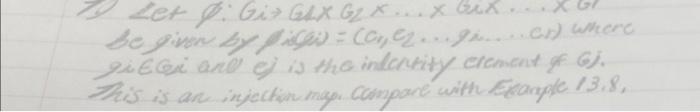 7) Let φ: Gi → G1 x G2 x ... x Gix ... x Gr
be given by φi(gi) = (e1, e2 ... gi .... er) where
gi ∈ Gi and ej is the indentity element of Gj.
This is an injection map. Compare with Example 13.8.